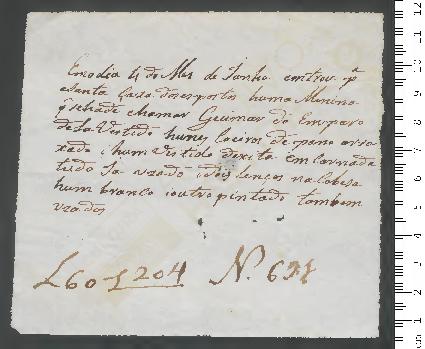 Em odia 4 do Mes de Junho entrou pª
a Santa Caza dos espostos huma Menina
q̃ sehade chamar Guimar do Emparo
Vestido huns Coeiros de pano arro
xado i hum Vestido dexita Em Carnada
tudo Ja vzado i dois Lenços na Cabesa
hum branco ioutro pintado tambem
vzados
L 60 f 204 N. 631